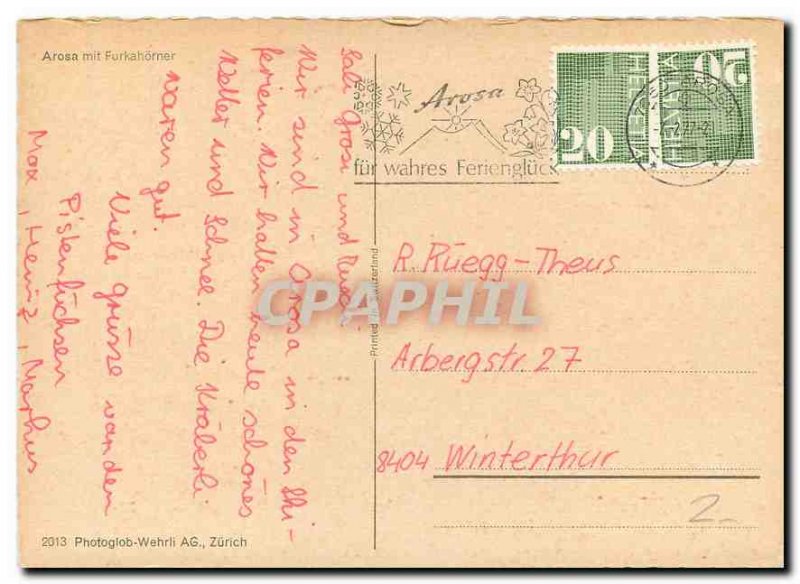 Arosa mit Furkahörner
Sali Grosi und Ruedi
Wir sind in Arosa in den Ski-
ferien. Wir hatten heute schönes
Wetter und Schnee. Die Kräberli
waren gut.
Viele grüsse von den
Pistenfüchsen
Max, Heinz, Markus
2013 Photoglob-Wehrli AG., Zürich
Printed in Switzerland
Arosa
für wahres Ferienglück
HELVETIA
20
HELVETIA
20
R. Rüegg-Theus
Arbergstr. 27
8404 Winterthur
2.-
CPAPHIL